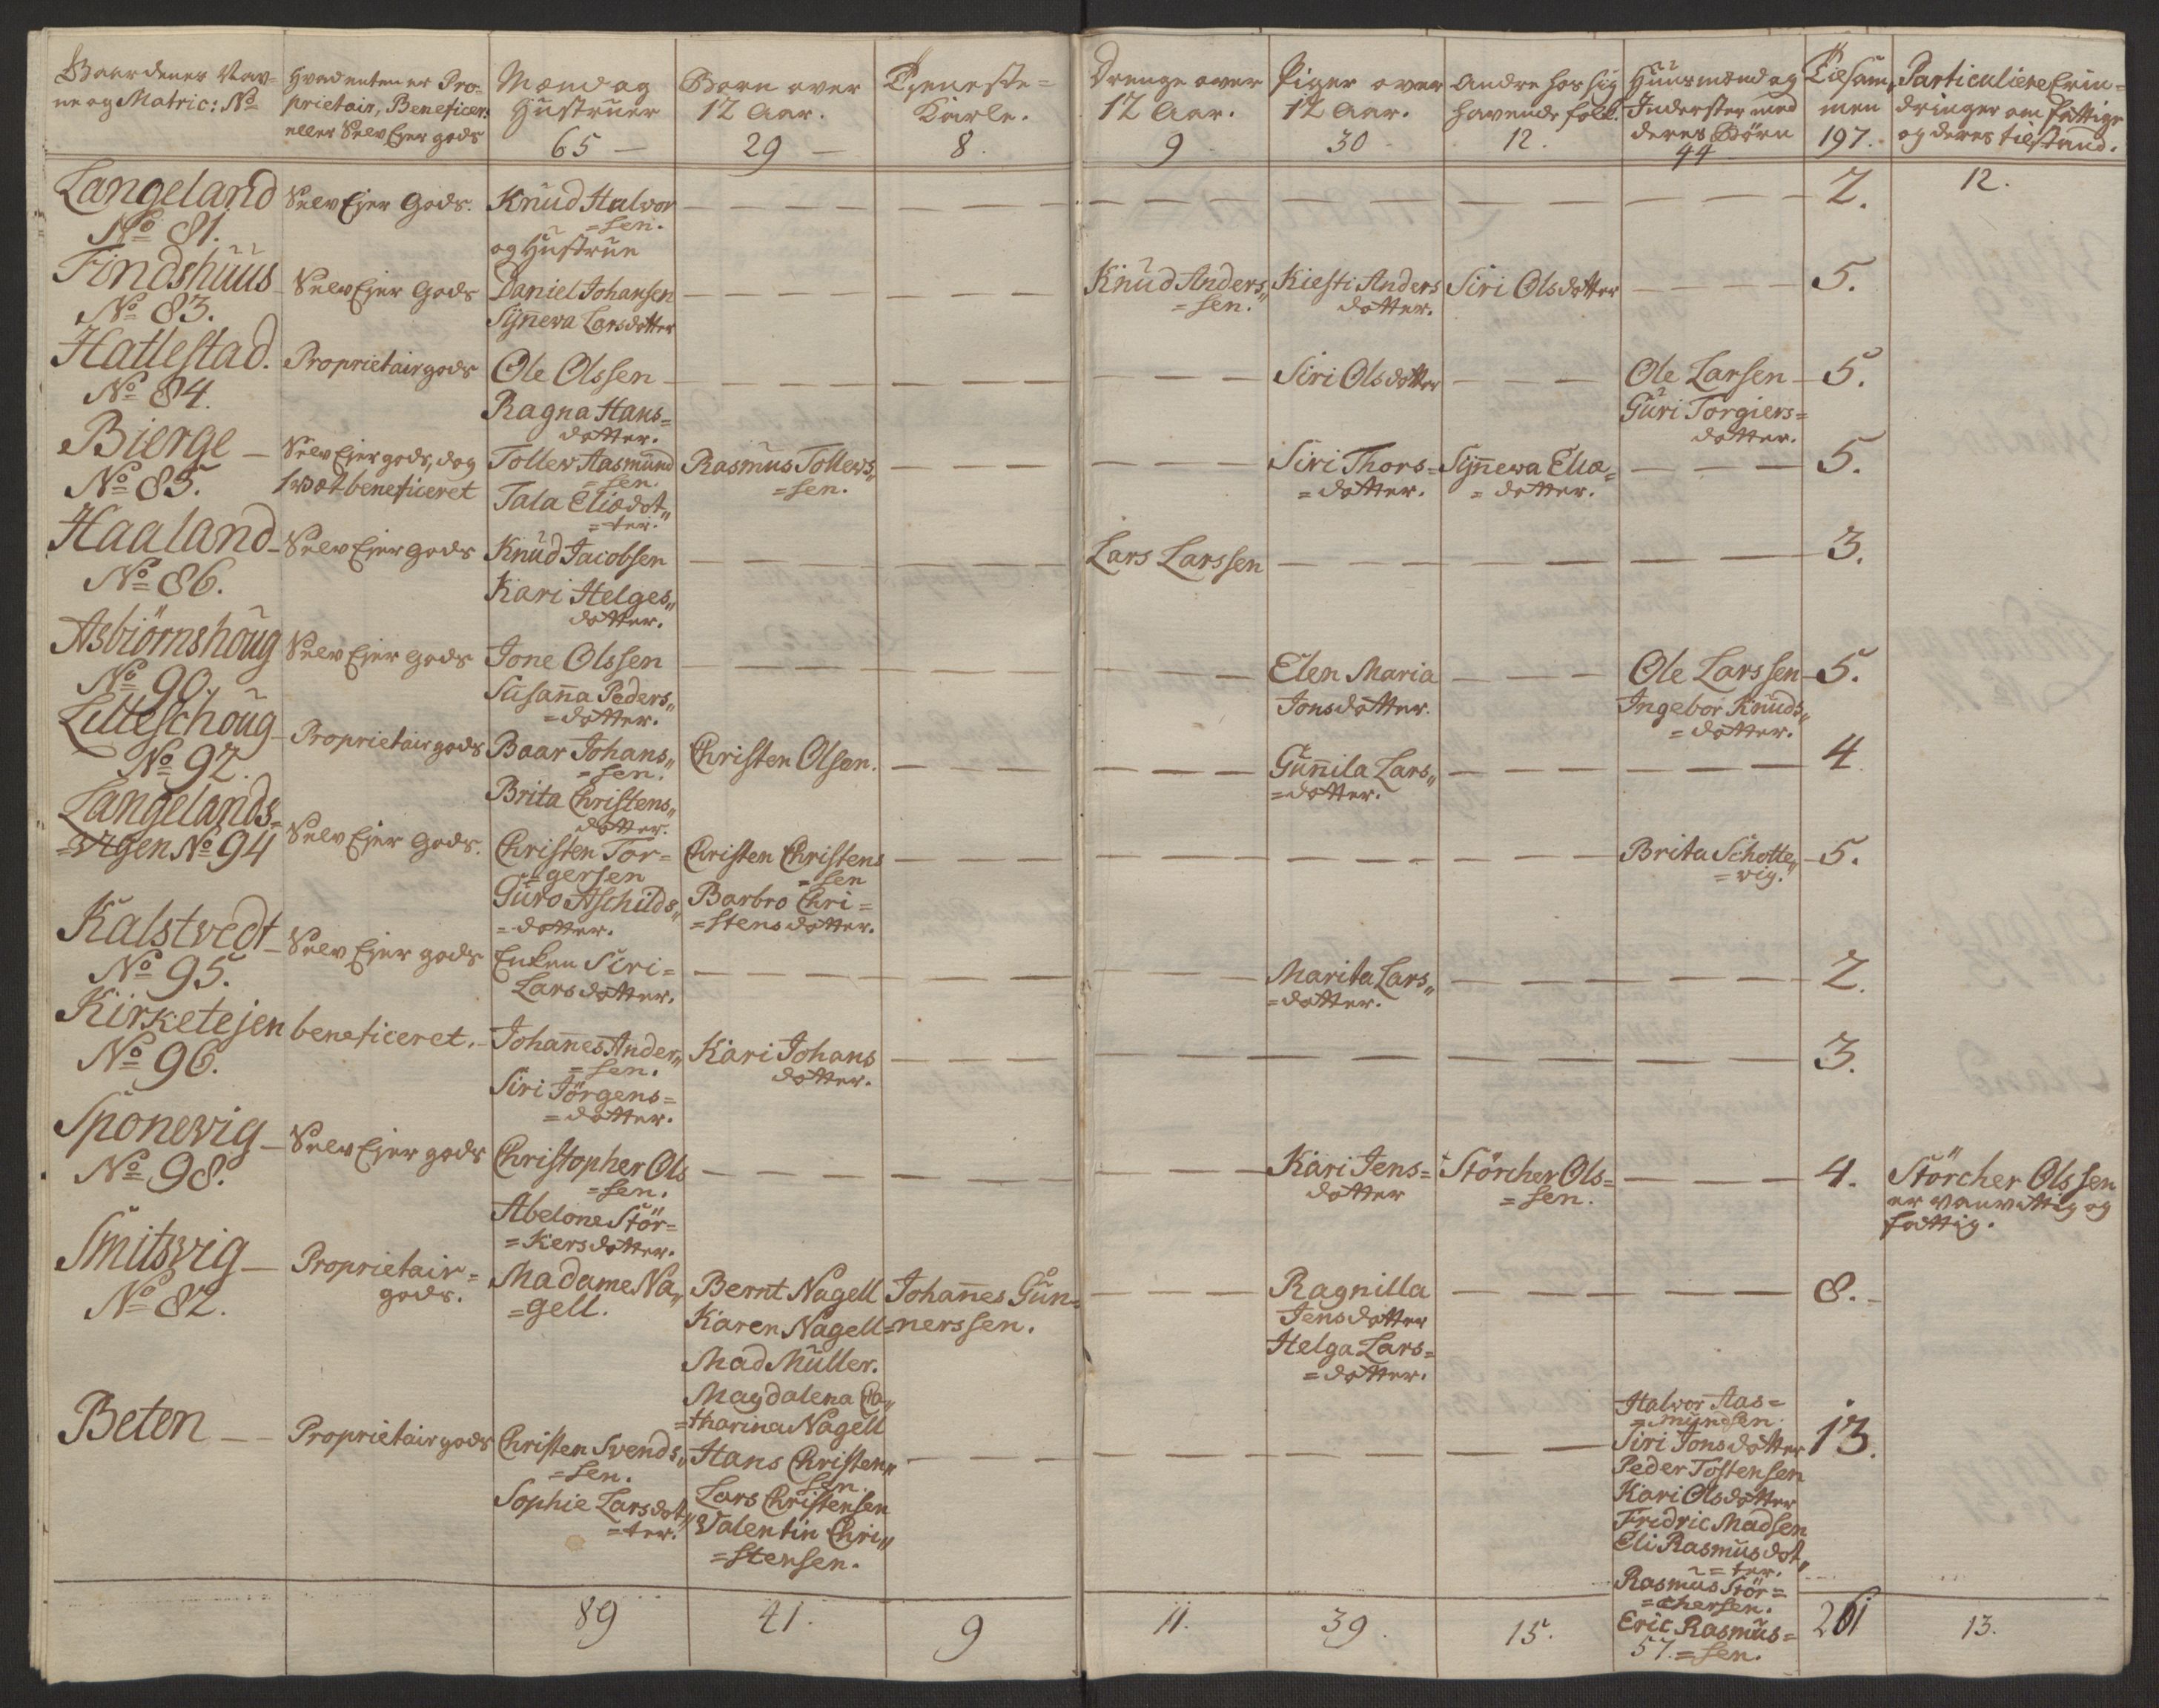 Gaardenes Nav=
ne og Matric: No
Hvad enten er Pro=
prietair, Beneficer:
eller Selv Ejer gods
Mænd og
Hustruer
65 —
Børn over
12 Aar.
29 —
Tjeneste=
Karle.
8.
Drenge over
12 Aar.
9
Piger over
12 Aar.
30
Andre hos sig
havende folk.
12.
Huusmænd og
Inderster med
deres Börn
44
Tilsam„
men
197.
Particuliere Erin=
dringer om fattige
og deres tilstand.
12.
Langeland
No 81.
Selv Ejer Gods.
Knud Halvor
=sen.
og Hustrue
2.
Findshuus
No 83.
Selv Ejer Gods
Daniel Johansen
Sÿneva Larsdotter
Knud Anders„
=sen.
Kiesti Anders
dotter.
Siri Olsdotter
5.
Hatlestad.
No 84.
Proprietair gods
Ole Olssen
Ragna Hans=
dotter.
Siri Olsdotter
Ole Larsen
Guri Torgiers=
dotter.
5.
Bierge
No 85.
Selv Ejer gods, dog
1 Wet beneficeret
Tollew Aasmund
=sen.
Tala Eliædot„
=ter.
Rasmus Tollews„
=sen.
Siri Thors=
=dotter.
Sÿneva Eliæ=
=dotter.
5.
Haaland
No 86.
Selv Ejer gods
Knud Jacobsen
Kari Helges„
dotter.
Lars Larssen
3.
Asbiörnshoug
No 90.
Selv Ejer Gods
Jone Olssen
Susana Peders„
=dotter.
Elen Maria
Jonsdotter.
Ole Larssen
Ingebor Knuds„
=dotter.
5.
Litleschoug
No 92.
Proprietair gods
Baar Johans„
=sen.
Brita Christens„
dotter.
Christen Olsen.
Gunila Lars„
=dotter.
4
Langelands=
=Vigen No 94
Selv Ejer Gods.
Christen Tor=
=gersen
Guro Aschilds„
=dotter.
Christen Christens
=sen
Barbro Chri=
=stensdotter.
Brita Schotte„
=vig.
5.
Kalstvedt
No 95.
Selv Ejer gods
Enken Siri=
Larsdotter.
Marita Lars„
=dotter.
2.
Kirketejen
No 96.
beneficeret.
Johanes Ander„
=sen.
Siri Jörgens=
=dotter.
Kari Johans
dotter.
3.
Sponevig
No 98.
Selv Ejer gods
Christopher Ols
=sen.
Abelone Stör=
=kersdotter.
Kari Jens=
dotter
Störcher Ols=
=sen.
4.
Störcher Olssen
er vanvittig og
fattig.
Smitsvig
No 82.
Proprietair=
gods.
Madame Na„
=gell.
Bernt Nagell
Karen Nagell
Mad Müller.
Magdalena Ca„
=tharina Nagell
Johanes Gun=
=nerssen.
Ragnilla
Jensdotter
Helga Lars=
=dotter.
8.
Beten
Proprietair gods
Christen Svends„
=sen.
Sophie Larsdot„
=ter.
Hans Christen„
sen.
Lars Christensen
Valentin Chri„
=stensen.
Halvor Aas=
=mundsen.
Siri Jonsdotter
Peder Tostensen
Kari Olsdotter
Fridric Madsen
Eli Rasmusdot„
=ter.
Rasmus Stör=
=chersen.
Eric Rasmus=
=sen.
13.
89
41.
9
11.
39.
15.
57.
261
13.